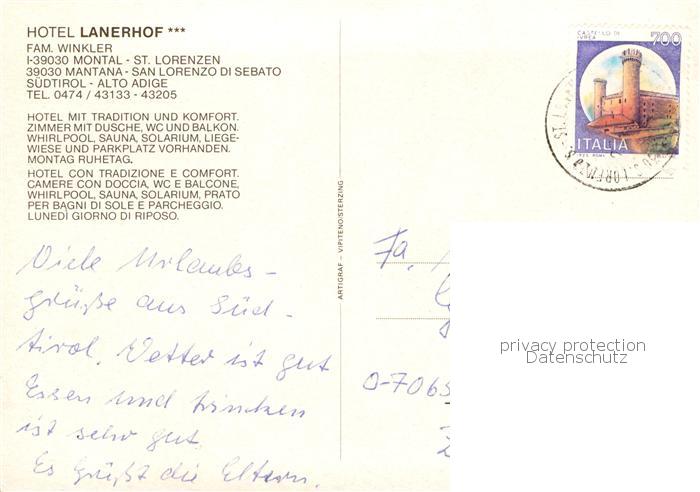 HOTEL LANERHOF ***
FAM. WINKLER
I-39030 MONTAL - ST. LORENZEN
39030 MANTANA - SAN LORENZO DI SEBATO
SÜDTIROL - ALTO ADIGE
TEL. 0474 / 43133 - 43205
HOTEL MIT TRADITION UND KOMFORT.
ZIMMER MIT DUSCHE, WC UND BALKON.
WHIRLPOOL, SAUNA, SOLARIUM, LIEGE-
WIESE UND PARKPLATZ VORHANDEN.
MONTAG RUHETAG.
HOTEL CON TRADIZIONE E COMFORT.
CAMERE CON DOCCIA, WC E BALCONE,
WHIRLPOOL, SAUNA, SOLARIUM, PRATO
PER BAGNI DI SOLE E PARCHEGGIO.
LUNEDÌ GIORNO DI RIPOSO.
Viele Urlaubs-
grüße aus Süd-
tirol. Wetter ist gut
Essen und trinken
ist sehr gut
Es grüßt die Eltern.
ARTIGRAF - VIPITENO/STERZING
CASTELLO DI
IVREA
700
ITALIA
Fa.
O-7065
privacy protection
Datenschutz